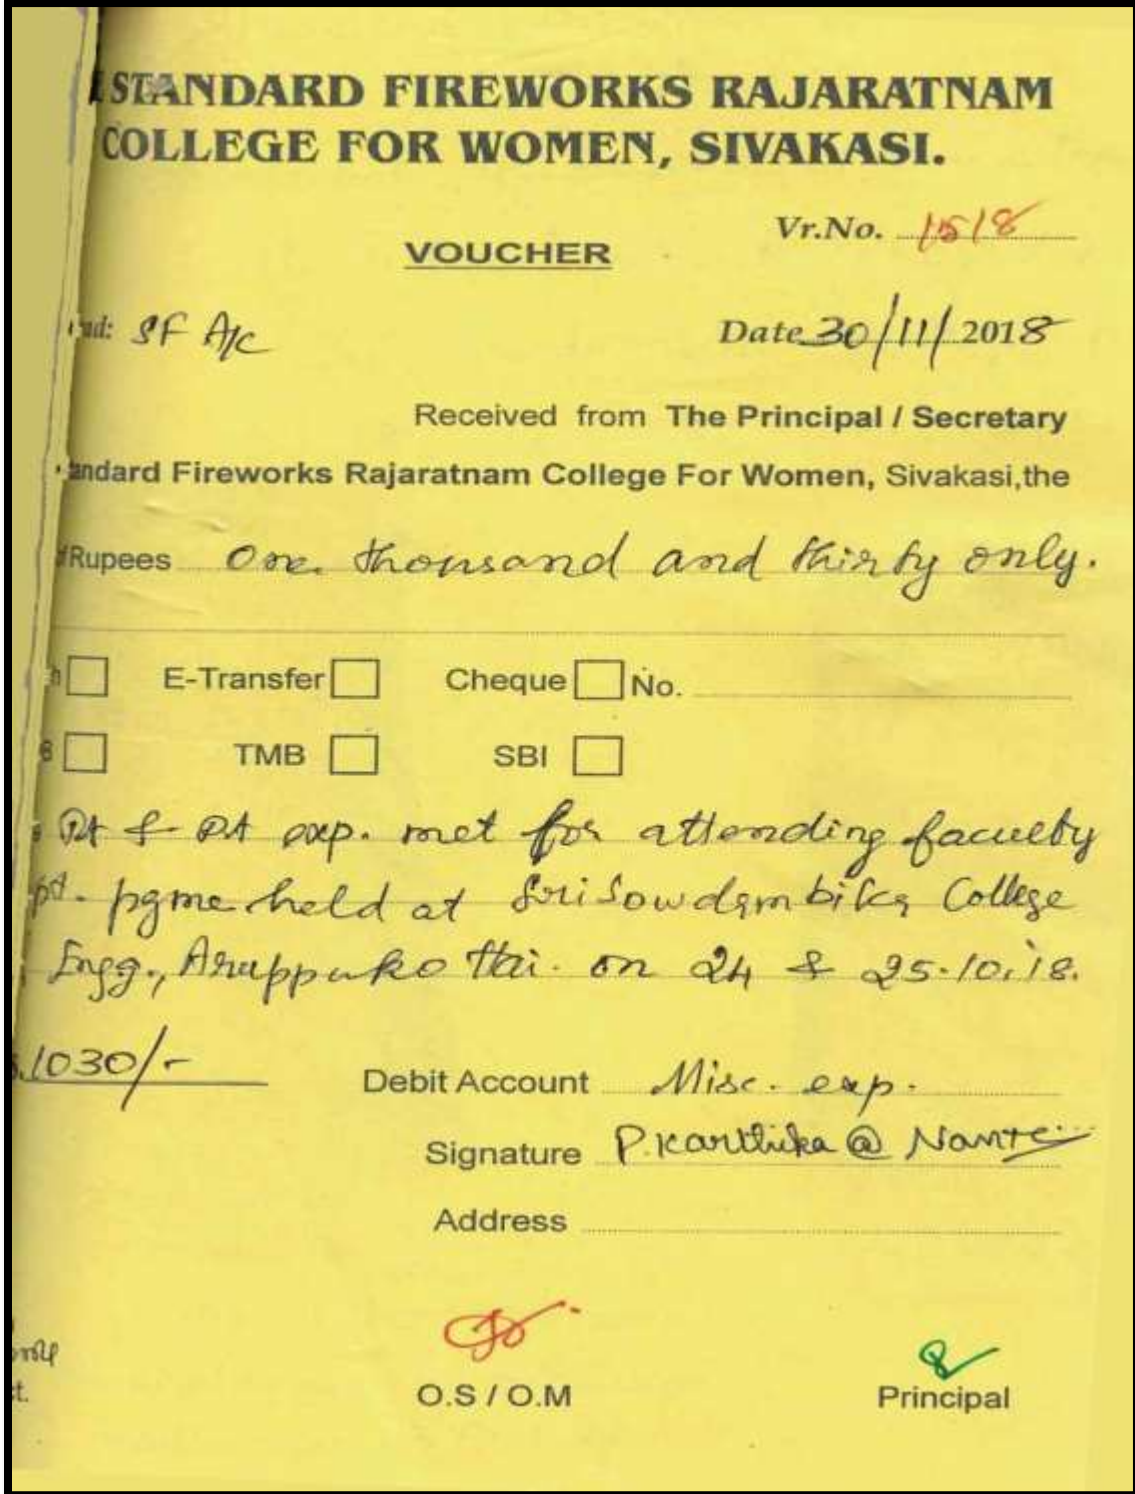 STANDARD FIREWORKS RAJARATNAM
COLLEGE FOR WOMEN, SIVAKASI.
Vr.No. 1518
VOUCHER
SF A/c
Date 30/11/2018
Received from The Principal / Secretary
andard Fireworks Rajaratnam College For Women, Sivakasi,the
Rupees One thousand and thirty only.
E-Transfer Cheque No.
TMB SBI
& DA exp. met for attending faculty
pgme held at Sri Sowdambika College
Engg., Aruppukottai. on 24 & 25.10.18.
1030/-
Debit Account Misc. exp.
Signature P. Karthika @
Address
O.S / O.M
Principal